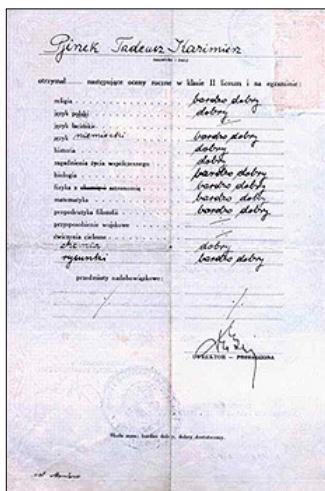 Tadeusz Kazimierz
otrzymał następujące oceny roczne w klasie II liceum i na egzaminie:
religia bardzo dobry
język polski dobry
język łaciński
język niemiecki bardzo dobry
historia dobry
zagadnienia życia współczesnego dobry
biologia bardzo dobry
fizyka z astronomią bardzo dobry
matematyka bardzo dobry
propedeutyka filozofii bardzo dobry
przysposobienie wojskowe
ćwiczenia cielesne
chemia dobry
rysunki bardzo dobry
przedmioty nadobowiązkowe:
DYREKTOR — PRZEŁOŻONA
Skala ocen: bardzo dobry, dobry, dostateczny.